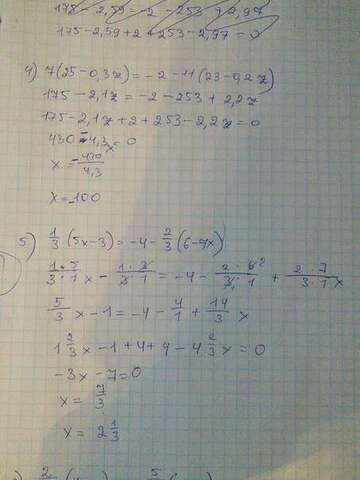 175 - 2,59 = -2 - 253 + 2,97
175 - 2,59 + 2 + 253 - 2,97 = 0
4) 7(25 - 0,3z) = -2 - 11(23 - 0,2z)
175 - 2,1z = -2 - 253 + 2,2z
175 - 2,1z + 2 + 253 - 2,2z = 0
430 - 4,3x = 0
x = -430/4,3
x = -100
5) 1/3 (5x - 3) = -4 - 2/3 (6 - 7x)
1·5/3·1 x - 1·3/3·1 = -4 - 2·6²/3·1 + 2·7/3·1 x
5/3 x - 1 = -4 - 4/1 + 14/3 x
1 2/3 x - 1 + 4 + 4 - 4 2/3 x = 0
-3x - 7 = 0
x = 7/3
x = 2 1/3